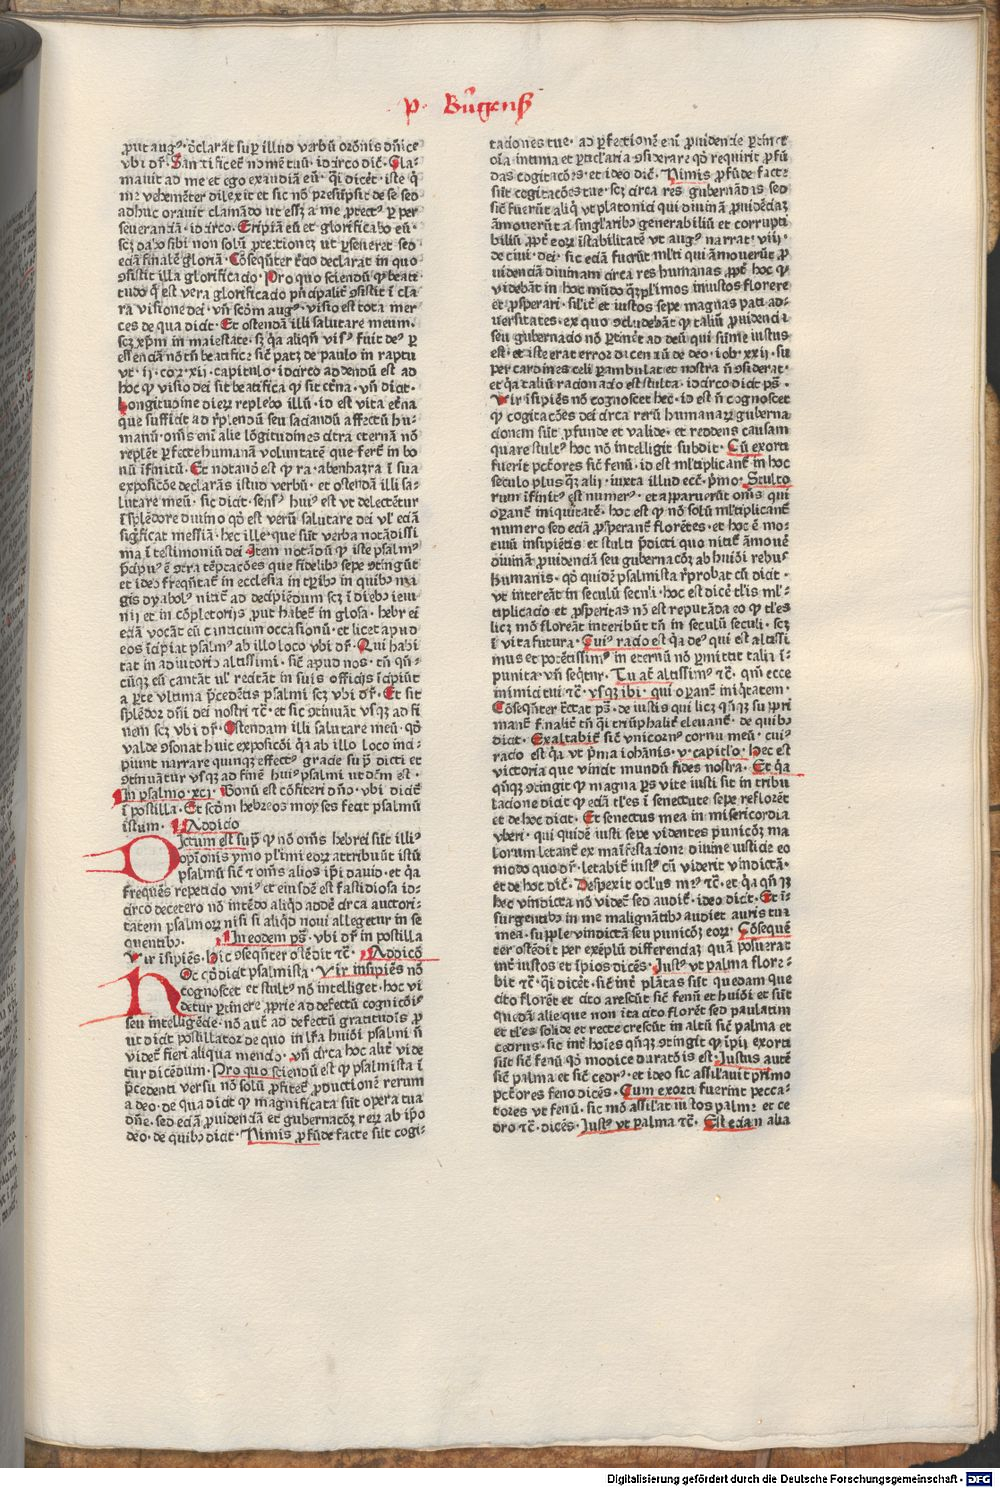 p. Burgenß
ꝓut augꝰ. ꝺclarat suꝑ illud verbū orōnis dn̄ice
vbi dr̄. Sanctificet̄ nomē tuū. idcirco dic̄. Cla-
mauit ad me et ego exaudiā eū. qi dicēt. iste q̄
me vehemēter dilexit et sic nō p̄esūpsit de se sed
adhuc orauit clamādo ut esset a me ꝓtectꝰ ꝑ per
seuerantiā. idcirco. Eripiā eū et glorificabo eū.
scꝫ dabo sibi non solū ꝓtectionez ut ꝑseueret sed
eciā finalē gloriā. Cōseqn̄ter t̄cio declarat in quo
ꝯsistit illa glorificacio. Pro quo sciendū ꝙ beati
tudo q̄ est vera glorificacio p̄ncipalit̄ ꝯsistit ī cla
ra visione dei. vn̄ scd̄m augꝰ. visio est tota mer
ces de qua dicit. Et ostendā illi salutare meum.
scꝫ xp̄m in maiestate. sꝫ q̄a aliqn̄ visꝰ fuit deꝰ ꝑ
essenciā nō tn̄ beatifice sic̄ patꝫ de paulo in raptu
vt. ij. cor. xij. capitulo. idcirco addendū est ad
hoc ꝙ visio dei sit beatifica ꝙ sit et̄na. vn̄ dicit.
Longitudine dierꝫ replebo illū. id est vita et̄na
que sufficit ad r̄plendū seu saciandū affectū hu-
manū. om̄s eni alie lōgitudines citra eternā nō
replēt ꝑfecte humanā voluntatē que fert̄ in bo
nū īfinitū. Et notanꝺ est ꝙ ra. abenhazra ī sua
expositiōe declarās istud verbū. et ostendā illi sa-
lutare meū. sic dicit. sensꝰ huiꝰ est vt delectētur
ī splēdore diuino qd̄ est verū salutare dei vl̄ eciā
sig̅ficat messiā. hec ille. que sūt verba notādissi
ma ī testimoniū dei. Item notādū ꝙ iste psalmꝰ
p̄cipuꝰ ē ꝯtra tēptacōes que fidelibꝫ sepe ꝯtingūt
et ideo freqn̄tat̄ in ecclesia in tꝑibꝫ in quibꝫ ma
gis dyabolꝰ nitit̄ ad decipiēdum scꝫ ī diebꝫ ieiu
nij et in cōpletorijs put habet̄ in glosa. hebrei
eciā vocāt eū canticum occasionū. et licet apud
eos īcipiat psalmꝰ ab illo loco vbi dr̄. Qui habi
tat in adiutorio altissimi. sic̄ apud nos. tn̄ qn̄-
cūqꝫ eū cantāt ul̄ recitāt in suis officijs īcipiūt
a ꝑte vltima p̄cedētis psalmi scꝫ vbi dr̄. Et sit
splēdor dn̄i dei nostri tc̄. et sic ꝯtinuāt vsqꝫ ad fi
nem scꝫ vbi dr̄. Ostendam illi salutare meū. qd̄
valde ꝯsonat huic exposicōi q̄a ab illo loco inci-
piunt narrare quinqꝫ effectꝰ gracie suꝑ dicti et
ꝯtinuātur vsqꝫ ad finē huiꝰ psalmi ut dc̄m est.
In psalmo. xcj. Bonū est cōfiteri dn̄o. vbi dicit̄
ī postilla. Et scd̄m hebreos moyses fecit psalmū
istum. Addicio
Dictum est sup̄ ꝙ nō om̄s hebrei sūt illiꝰ
opīonis ymo pl̄imi eorꝫ attribuūt istū
psalmū sic̄ ⁊ om̄s alios ip̄i dauid. et q̄a
frequēs repeticio vniꝰ et eiusdē est fastidiosa id-
circo decetero nō intēdo aliqd̄ addē circa auctori-
tatem psalmorꝫ nisi si aliqd̄ noui allegetur in se
quentibꝫ. In eodem ps̄. vbi dr̄ in postilla
Vir īsipiēs. hic ꝯseqn̄ter ostēdit tc̄. Addicō
Hoc cōdicit psalmista. Vir insipiēs nō
cognoscet et stultꝰ nō intelliget. hoc vi
detur ꝑtinere ꝓprie ad defectū cognicōis
seu intelligēcie. nō aut̄ ad defectū gratitudīs ꝓ
ut dicit postillator de quo in lr̄a huiꝰdi psalmi n̄
videt̄ fieri aliqua mencio. vn̄ circa hoc alit̄ vide
tur dicēdum. Pro quo sciendū est ꝙ psalmista ī
p̄cedenti versu nō solū ꝓfitet̄ ꝓductionē rerum
a deo. de qua dicit ꝙ magnificata sūt opera tua
dn̄e. sed eciā ꝓuidenciā et gubernacōꝫ rerꝫ ab ip̄o
deo. de quibꝫ dicit. Nimis ꝓfūde facte sūt cogi-
taciones tue. ad ꝑfectionē eni ꝓuidencie ꝑtinet
oīa intima et p̄clara ꝯsiderare qd̄ requirit ꝓfū
das cogitacōes. et ideo dic̄. Nimis ꝓfūde facte
sūt cogitacōes tue. scꝫ circa res gubernādas sed
sic̄ fuerūt aliqi ut platonici qui diuinā ꝓuidēciaꝫ
āmouerūt a singlaribꝫ generabiliū et corrupti
biliū ꝓpt̄ eorꝫ īstabilitatē vt augꝰ narrat. viij.
de ciui. dei. sic eciā fuerūt ml̄ti qui āmouerūt ꝓ
uidenciā diuinam circa res humanas ꝓpt̄ hoc ꝙ
videbāt in hoc mūdo qꝫplimos iniustos florere
et ꝓsperari. sil̄it̄ et iustos sepe magnas pati ad-
uersitates. ex quo ꝯcludebāt ꝙ taliū ꝓuidencia
seu gubernacio nō ꝑtinet ad deū qui sūme iustus
est. et iste erat error dicentū de deo. iob. xxij. su
per cardines celi ꝑambulat et nostra n̄ ꝯsiderat.
et q̄a taliū racionacio est stulta. idcirco dicit ps̄.
Vir īsipiēs nō cognoscet hec. id est n̄ cognoscet
ꝙ cogitacōes dei circa rerū humanarꝫ guberna
cionem sūt ꝓfunde et valide. et reddens causam
quare stultꝰ hoc nō intelligit subdit. Cū exorti
fuerīt pctōres sic̄ fenū. id est ml̄tiplicant̄ in hoc
seculo plus qꝫ alij. iuxta illud ecc̄. p̄mo. Stulto
rum īfinitꝰ est numerꝰ. et apparuerūt om̄s qui
oꝑant̄ iniquitatē. hoc est ꝙ nō solū ml̄tiplicant̄
numero sed eciā ꝓsperant̄ florētes. et hoc ē mo-
tiuū insipiētis et stulti p̄dicti quo nitit̄ āmouē
diuinā ꝓuidenciā seu gubernacōꝫ ab huiꝰdi rebꝰ
humanis. qd̄ quidē psalmista r̄probat cū dicit.
vt intereāt in seculū seculi. hoc est dicē tl̄is ml̄-
tiplicacio et ꝓsperitas nō est reputāda eo ꝙ tl̄es
licꝫ mō floreāt interibūt tn̄ in seculū seculi. scꝫ
ī vita futura. Cuiꝰ racio est q̄a deꝰ qui est altissi
mus et potētissimꝰ in eternū nō ꝑmittit talia ī-
punita. vn̄ seqtur. Tu at̄ altissimꝰ tc̄. qm̄ ecce
inimici tui tc̄. vsqꝫ ibi. qui oꝑant̄ iniqtatem.
Cōseqn̄ter t̄ctat ps̄. de iustis qui licꝫ qn̄qꝫ supꝑri
mant̄ finalit̄ tn̄ qi triūphalit̄ eleuant̄. de quibꝫ
dicit. Exaltabit̄ sic̄ vnicornꝰ cornu meū. cuiꝰ
racio est q̄a vt p̄ma iohānis. v. capitl̄o. hec est
victoria que vincit mundū fides nostra. Et q̄a
qn̄qꝫ ꝯtingit ꝙ magna ꝑs vite iusti sit in tribu
lacione dicit ꝙ eciā tl̄es ī senectute sepe reflorēt
et de hoc dicit. Et senectus mea in misericordia
vberi. qui quidē iusti sepe videntes punicōꝫ ma
lorum letant̄ ex maīfestacione diuine iusticie eo
modo quo dr̄. letabit̄ iustꝰ cū viderit vindictā.
et de hoc dic̄. Despexit oclūs mꝰ tc̄. et q̄a qn̄qꝫ
hec vindicta nō videt̄ sed audit̄. ideo dicit. Et ī-
surgentibꝫ in me malignātibꝫ audiet auris tua
mea. supple vindictā seu punicōꝫ eorꝫ. Cōsequē
ter ostēdit per exēplū differenciaꝫ quā posuerat
int̄ iustos et īpios dicēs. Justꝰ vt palma flore-
bit tc̄. qi dicēt. sic̄ int̄ plātas sūt quedam que
cito florēt et cito arescūt sic̄ fenū et huiꝰdi et sūt
quedā alie que non ita cito florēt sed paulatim
et tl̄es solide et recte crescūt in altū sic̄ palma et
cedrus. sic int̄ hoīes qn̄qꝫ ꝯtingit ꝙ īpij exorti
sūt sic̄ fenū qd̄ modice duratōīs est. Justus autē
sic̄ palma et sic̄ cedrꝰ. et ideo sic assil̄auit primo
pctōres feno dicēs. Cum exorti fuerint pecca-
tores vt fenū. sic mō assil̄at iustos palme et ce
dro tc̄. dicēs. Justꝰ vt palma tc̄. Est eciam alia
Digitalisierung gefördert durch die Deutsche Forschungsgemeinschaft - DFG